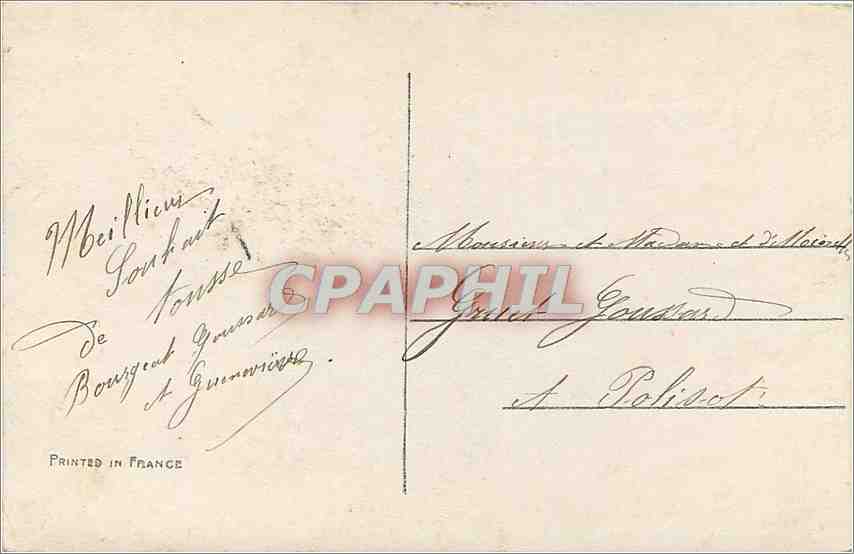 Meilleur
Souhait
de tousse
Bourgeat Goussard
et Gueneviève.
PRINTED IN FRANCE
Monsieur et Madame et
Gruet Goussard
A Polisot
CPAPHIL